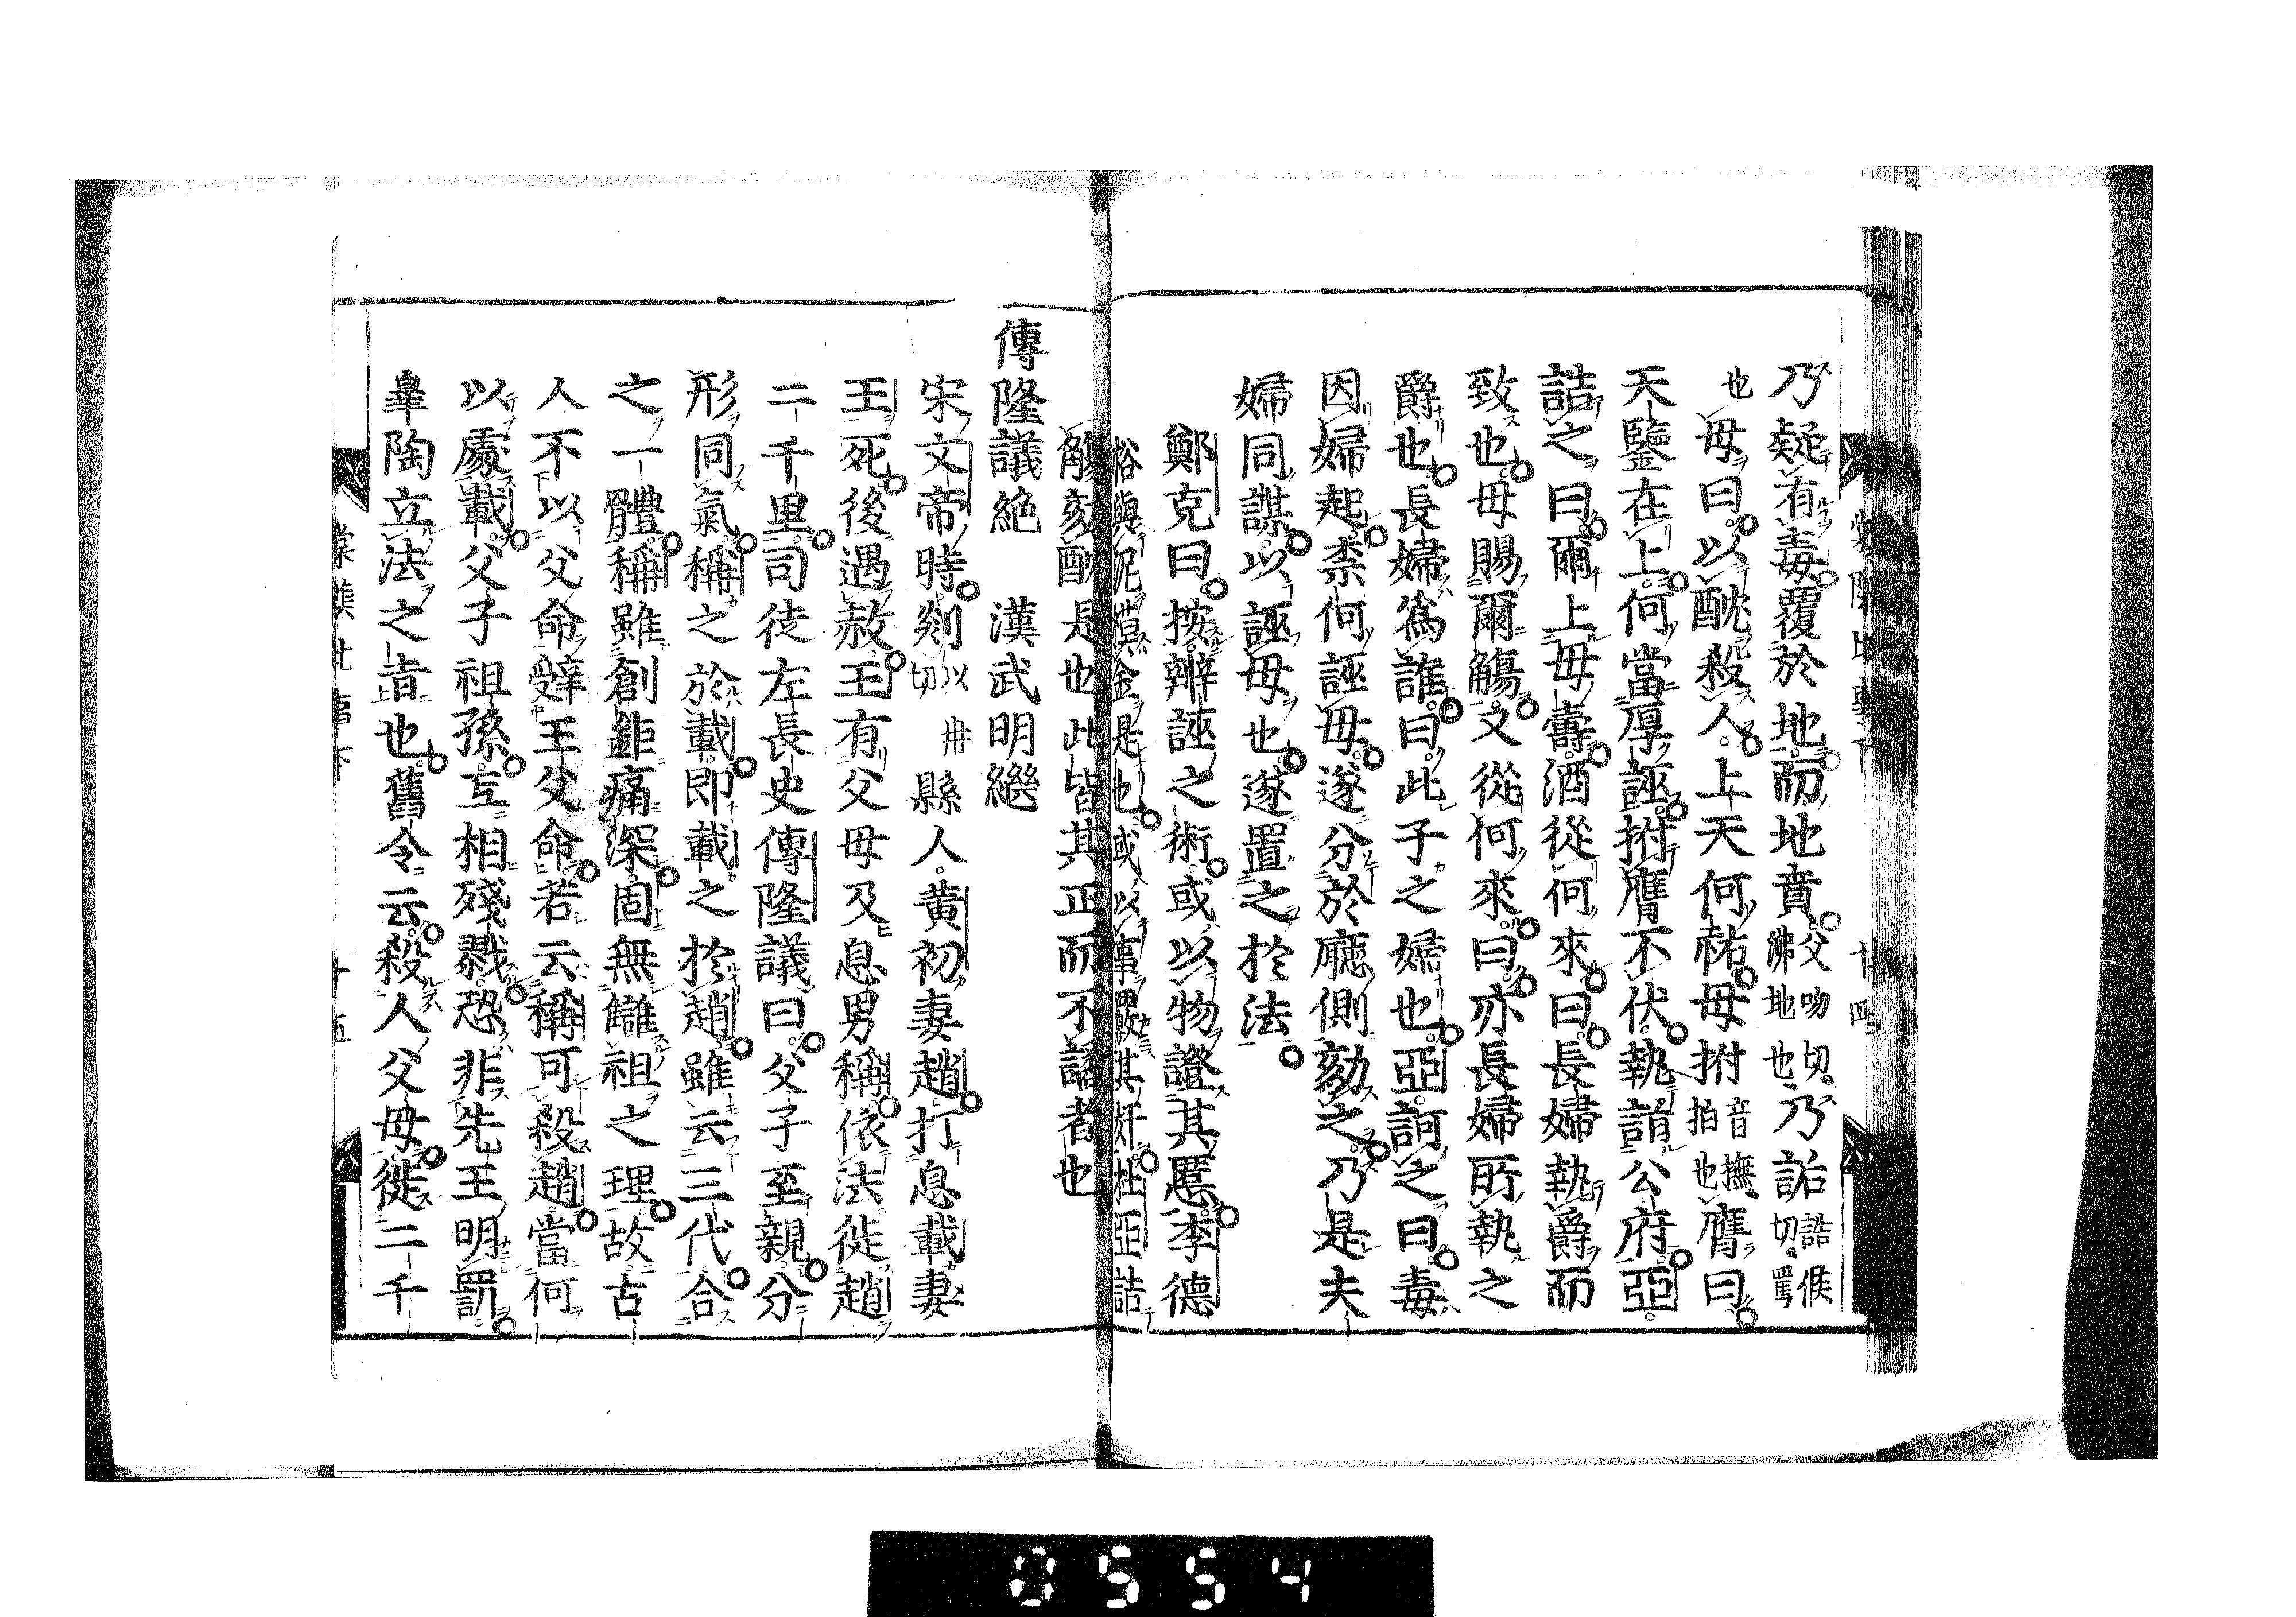 乃疑有毒覆於地而地賁父吻切沸地也乃詬詬候切罵
也母曰以酖殺人上天何祐母拊音撫拍也膺曰
天鑒在上何當厚誣拊膺不伏執詣公府亞
詰之曰爾上母壽酒從何來曰長婦執爵而
致也母賜爾觴又從何來曰亦長婦所執之
爵也長婦為誰曰此子之婦也亞訶之曰毒
因婦起柰何誣母遂分於廳側劾之乃是夫
婦同謀以誣母也遂置之於法
鄭克曰按辨誣之術或以物證其慝李德
裕與泥摸金是也或以事覈其奸杜亞詰
觴劾酖是也此皆其正而不譎者也
傳隆議絕 漢武明繼
宋文帝時剡以冉切縣人黃初妻趙打息載妻
王死後遇赦王有父母及息男稱依法徙趙
二千里司徒左長史傳隆議曰父子至親分
形同氣稱之於載即載之於趙雖云三代合
之一體稱雖創鉅痛深固無讎祖之理故古
人不以父命辭王父命若云稱可殺趙當何
以處載父子祖孫互相殘戮恐非先王明罰
臯陶立法之旨也舊令云殺人父母徙二千
棠陰比事下
十五
廿四
0554